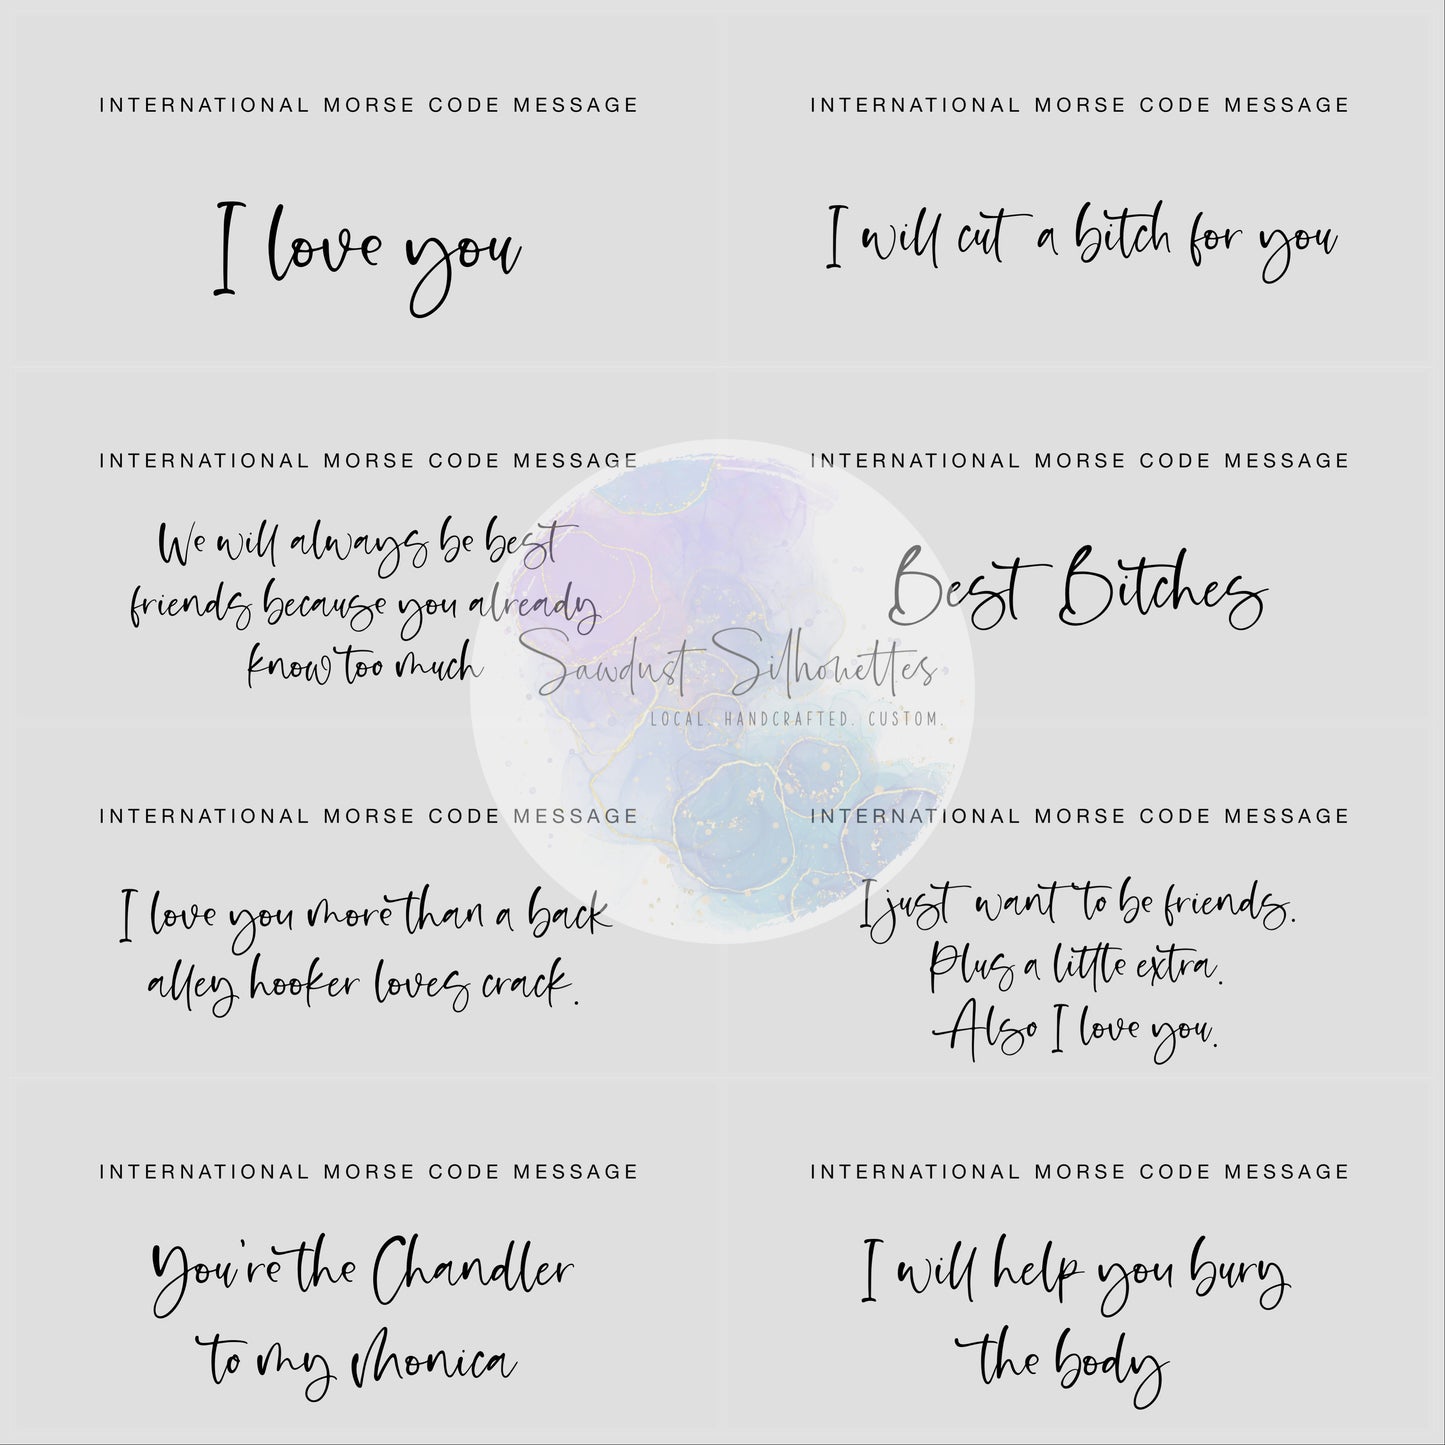 INTERNATIONAL MORSE CODE MESSAGE
I love you
INTERNATIONAL MORSE CODE MESSAGE
I will cut a bitch for you
INTERNATIONAL MORSE CODE MESSAGE
We will always be best
friends because you already
know too much
INTERNATIONAL MORSE CODE MESSAGE
Best Bitches
Sawdust Silhouettes
LOCAL. HANDCRAFTED. CUSTOM.
INTERNATIONAL MORSE CODE MESSAGE
I love you more than a back
alley hooker loves crack.
INTERNATIONAL MORSE CODE MESSAGE
I just want to be friends.
Plus a little extra.
Also I love you.
INTERNATIONAL MORSE CODE MESSAGE
You're the Chandler
to my Monica
INTERNATIONAL MORSE CODE MESSAGE
I will help you bury
the body